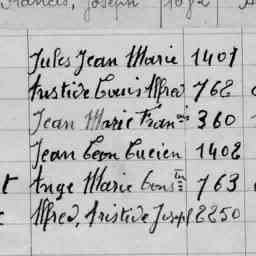 Francis, Joseph 1092
Jules Jean Marie 1401
Aristide Louis Alfred 762
Jean Marie Franois 360
Jean Leon Lucien 1402
t Ange Marie Constin 763
Alfred, Aristide Joseph 2250